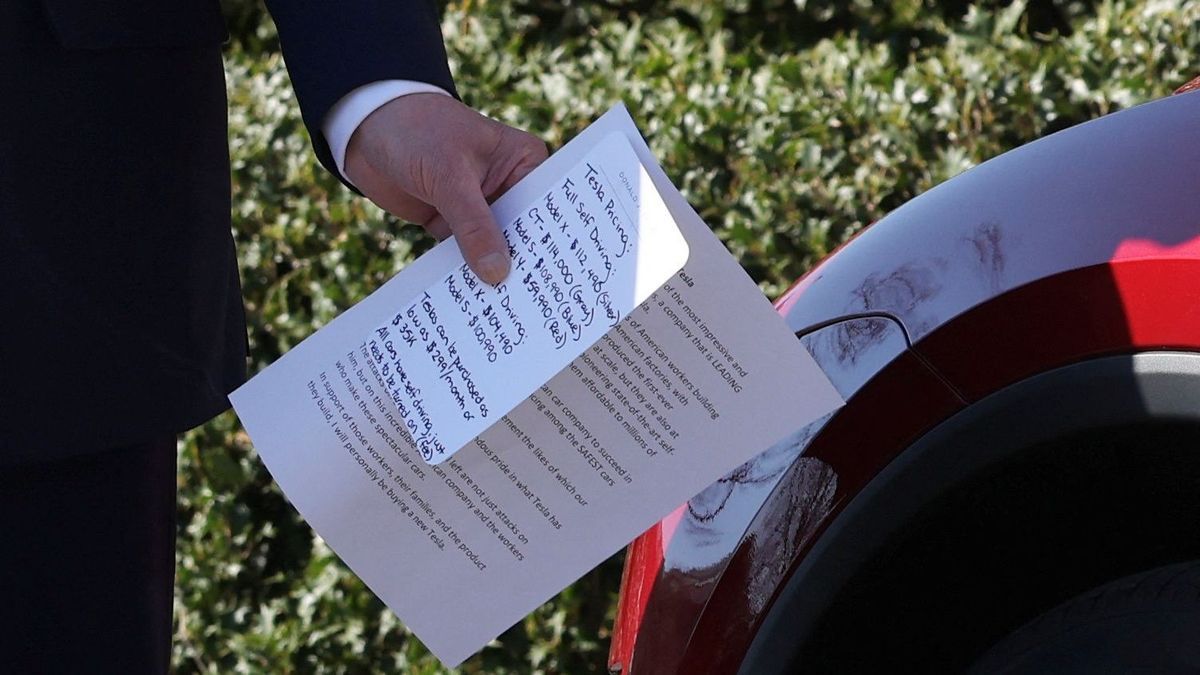 DONALD
Tesla Pricing:
Full Self Driving:
Model X - $112,490 (Silver)
CT - $114,000 (Gray)
Model S - $108,990 (Blue)
Model Y - $59,990 (Red)
Driving:
Model X - $104,490
Model S - $100,990
Teslas can be purchased as
low as $299/month or
$35K
All cars have self driving, just
needs to be turned on (fee)
Tesla
of the most impressive and
s, a company that is LEADING
s of American workers building
American factories, with
produced the first ever
pioneering state-of-the-art self-
at scale, but they are also at
em affordable to millions of
can car company to succeed in
cing among the SAFEST cars
ement the likes of which our
dous pride in what Tesla has
The attacks left are not just attacks on
him, but on this incredible can company and the workers
who make these spectacular cars.
In support of those workers, their families, and the product
they build, I will personally be buying a new Tesla.